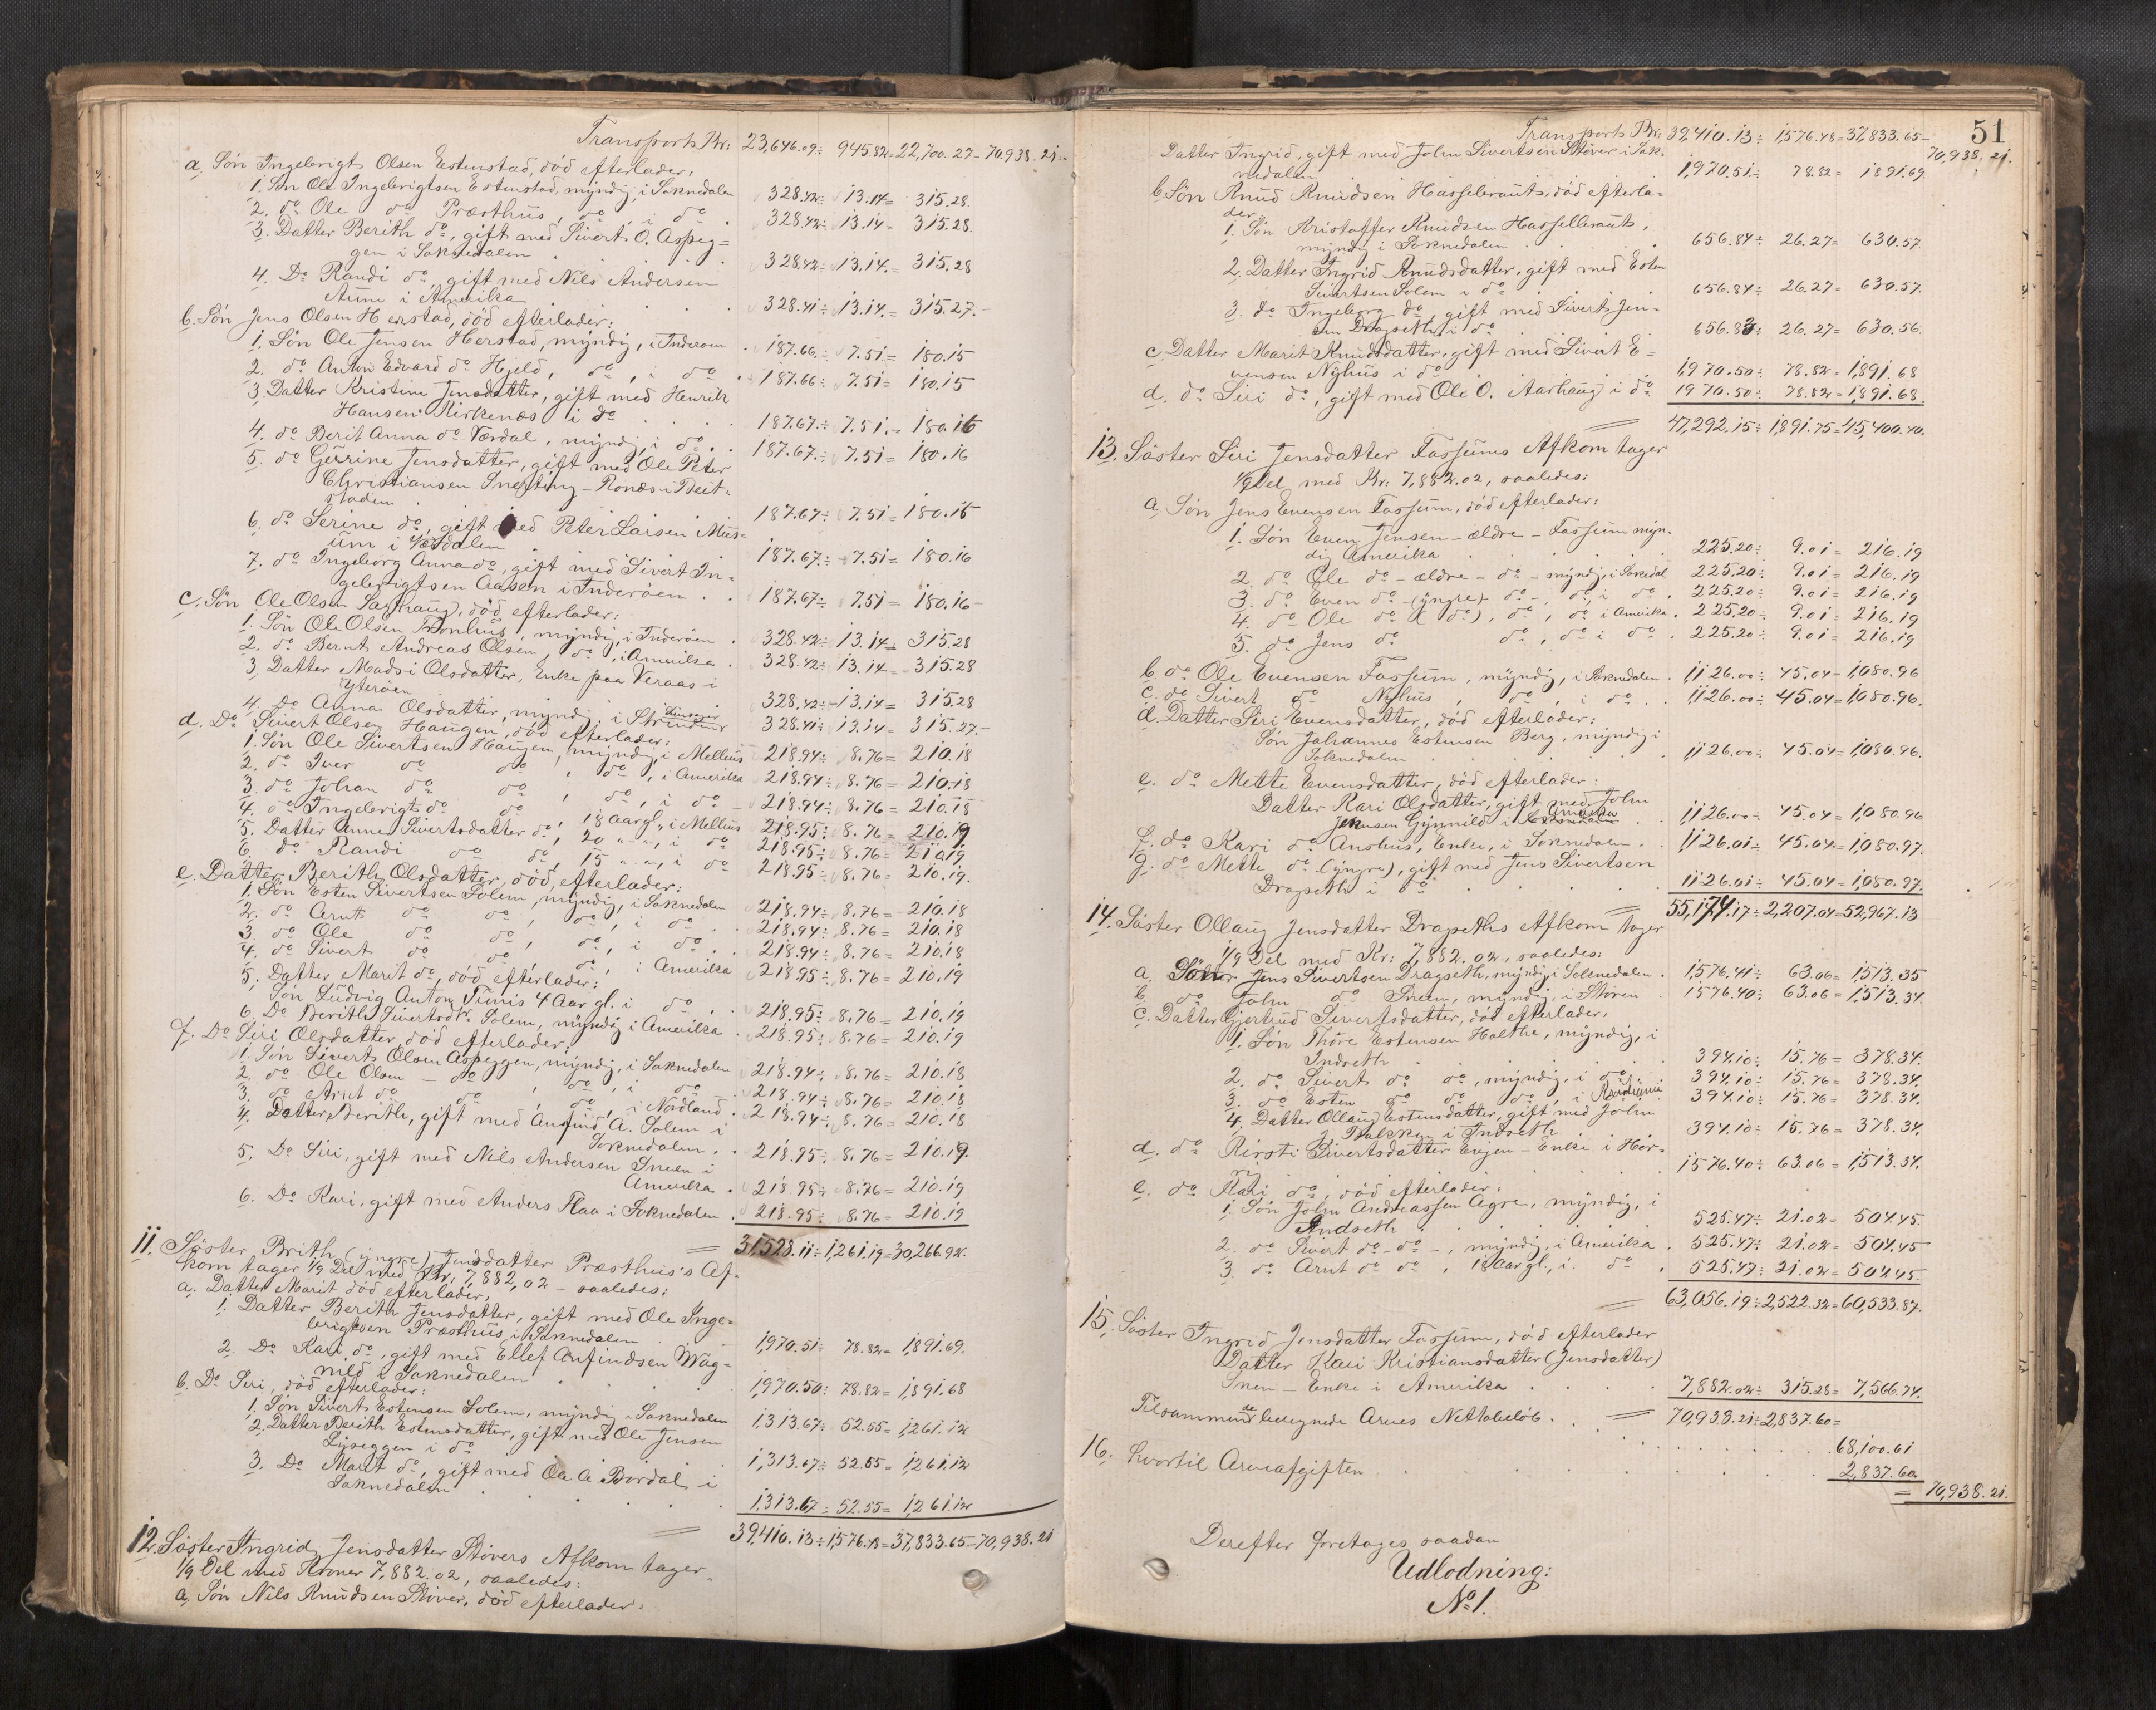 Transport Kr: 23,646.09 ÷ 945.82 = 22,700.27 - 70,938.21.
a. Søn Ingebrigt Olsen Estenstad, död efterlader:
1. Søn Ole Ingebrigtsen Estenstad, myndig, i Soknedalen 328.42 ÷ 13.14 = 315.28.
2. do Ole do Præsthus, do, i do . 328.42 ÷ 13.14 = 315.28.
3. Datter Berith do, gift med Sivert O. Aspeg=
gen i Soknedalen . . . 328.42 ÷ 13.14 = 315.28
4. Do Randi do, gift med Nils Andersen
Aune i Amerika . . . 328.41 ÷ 13.14 = 315.27.-
b. Søn Jens Olsen Herstad, död efterlader:
1. Søn Ole Jensen Herstad, myndig, i Inderøen . 187.66 ÷ 7.51 = 180.15
2. do Anton Edvard do Hjeld, do, i do . 187.66 ÷ 7.51 = 180.15
3. Datter Kristine Jensdatter, gift med Henrik
Hansen Kirkenæs i do . . . 187.67 ÷ 7.51 = 180.16
4. do Berit Anna do Værdal, myndig, i do . . 187.67 ÷ 7.51 = 180.16
5. do Gurine Jensdatter, gift med Ole Peter
Christiansen - Ronæs i Beit-
staden . 187.67 ÷ 7.51 = 180.16
6. do Serine do, gift med Peter Larsen Mus-
um i Værdalen 187.67 ÷ 7.51 = 180.16
7. do Ingeborg Anna do, gift med Sivert In-
gebrigtsen Aasen i Inderøen . . 187.67 ÷ 7.51 = 180.16-
c. Søn Ole Olsen Saxhaug, död efterlader:
1. Søn Ole Olsen Tronhus, myndig, i Inderøen . 328.42 ÷ 13.14 = 315.28
2. do Bernt Andreas Olsen, do, i Amerika . 328.42 ÷ 13.14 = 315.28
3. Datter Madsi Olsdatter, Enke paa Veraas i
Ytterøen . 328.42 ÷ 13.14 = 315.28
4. do Anna Olsdatter, myndig, i Strinden 328.41 ÷ 13.14 = 315.27.-
d. Do Sivert Olsen Haugen, död efterlader:
1. Søn Ole Sivertsen Haugen, myndig, i Melhus 218.94 ÷ 8.76 = 210.18
2. do Iver do do, do, i Amerika 218.94 ÷ 8.76 = 210.18
3. do Johan do do, do, i do - 218.94 ÷ 8.76 = 210.18
4. do Ingebrigt do do, 18 Aar gl., i Melhus 218.95 ÷ 8.76 = 210.19
5. Datter Anne Sivertsdatter do, 20 " ", i do 218.95 ÷ 8.76 = 210.19
6. do Randi do do, 15 " ", i do 218.95 ÷ 8.76 = 210.19.
e. Datter Berith Olsdatter, död, efterlader:
1. Søn Esten Sivertsen Solem, myndig, i Soknedalen 218.94 ÷ 8.76 = 210.18
2. do Arnt do do, do, i do . . 218.94 ÷ 8.76 = 210.18
3. do Ole do do, do, i do . 218.94 ÷ 8.76 = 210.18
4. do Sivert do do, do, i Amerika 218.95 ÷ 8.76 = 210.19
5. Datter Marit do, död efterlader:
Søn Ludvig Anton Tunis 4 Aar gl. i do . . 218.95 ÷ 8.76 = 210.19
6. Do Berith Sivertsdtr. Solem, myndig i Amerika . 218.95 ÷ 8.76 = 210.19
f. Do Siri Olsdatter, död efterlader:
1. Søn Sivert Olsen Aspeggen, myndig, i Soknedalen 218.94 ÷ 8.76 = 210.18
2. do Ole Olsen - do, do, i do - 218.94 ÷ 8.76 = 210.18
3. do Arnt do do, do, i Nordland . 218.94 ÷ 8.76 = 210.18
4. Datter Berith, gift med Anfind A. Solem i
Soknedalen . . 218.95 ÷ 8.76 = 210.19.
5. Do Siri, gift med Nils Andersen Sneen i
Amerika . 218.95 ÷ 8.76 = 210.19
6. Do Kari, gift med Anders Flaa i Soknedalen . 218.95 ÷ 8.76 = 210.19
= 31,528.11 ÷ 1,261.19 = 30,266.92.
11. Søster Brith (yngre) Jensdatter Præsthus's Af-
kom tager 1/9 Del med Kr: 7,882,02 - saaledes:
a. Datter Marit död efterlader,
1. Datter Berith Jensdatter, gift med Ole Inge-
brigtsen Præsthus i Soknedalen . 1,970.51 ÷ 78.82 = 1,891.69.
2. Do Kari do, gift med Ellef Anfindsen Wag-
nild i Soknedalen . . . 1,970.50 ÷ 78.82 = 1,891.68
b. Do Siri, död efterlader:
1. Søn Sivert Estensen Solem, myndig i Soknedalen 1,313.67 ÷ 52.55 = 1,261.12
2. Datter Berith Estensdatter, gift med Ole Jensen
Lyseggen i do . . . 1,313.67 ÷ 52.55 = 1,261.12
3. Do Marit do, gift med Ole A. Bordal i
Soknedalen . . . 1,313.67 ÷ 52.55 = 1,261.12
= 39,410.13 ÷ 1,576.48 = 37,833.65 - 70,938.21
12. Søster Ingrid Jensdatter Støvers Afkom tager
1/9 Del med Kroner 7,882.02, saaledes:
a. Søn Nils Knudsen Støver, död efterlader:
51
Transport Kr: 39,410.13 ÷ 1,576.48 = 37,833.65 -
70,938.21.
Datter Ingrid, gift med John Sivertsen Støver i Sok-
nedalen 1,970.51 ÷ 78.82 = 1891.69.
b. Søn Knud Knudsen Hasselbraut, död efterla-
der
1. Søn Kristoffer Knudsen Hasselbraut,
myndig i Soknedalen . . . 656.84 ÷ 26.27 = 630.57.
2. Datter Ingrid Knudsdatter, gift med Esten
Sivertsen Solem i do 656.84 ÷ 26.27 = 630.57.
3. do Ingeborg do, gift med Sivert Jen-
sen Dragseth i do . . . 656.83 ÷ 26.27 = 630.56.
c. Datter Marit Knudsdatter, gift med Sivert E-
vensen Nyhus i do 1,970.50 ÷ 78.82 = 1,891.68
d. do Siri do, gift med Ole O. Aarhaug i do 1970.50 ÷ 78.82 = 1,891.68.
= 47,292.15 ÷ 1,891.75 = 45,400.40.
13. Søster Siri Jensdatter Fossums Afkom tager
1/9 Del med Kr: 7,882.02, saaledes:
a. Søn Jens Evensen Fossum, död efterlader:
1. Søn Even Jensen - ældre - Fossum myn-
dig Amerika . . . 225.20 ÷ 9.01 = 216.19
2. do Ole do - ældre - do - myndig, i Soknedal. 225.20 ÷ 9.01 = 216.19
3. do Even do - (yngre) do -, do, i do . 225.20 ÷ 9.01 = 216.19
4. do Ole do ( do ), do, do i Amerika . 225.20 ÷ 9.01 = 216.19
5. do Jens do do, do i do . 225.20 ÷ 9.01 = 216.19
b. do Ole Evensen Fossum, myndig, i Soknedalen . 1,126.00 ÷ 45.04 = 1,080.96
c. do Sivert do Nyhus, do, i do . . 1,126.00 ÷ 45.04 = 1,080.96.
d. Datter Siri Evensdatter, död efterlader:
Søn Johannes Estensen Berg, myndig i
Soknedalen . . . 1126.00 ÷ 45.04 = 1,080.96.
e. do Mette Evensdatter, död efterlader:
Datter Kari Olsdatter, gift med John
Jensen Gynnild i Amerika . 1126.00 ÷ 45.04 = 1,080.96
f. do Kari do Aushus, Enke, i Soknedalen . 1126.01 ÷ 45.04 = 1,080.97.
g. do Mette do (yngre), gift med Jens Sivertsen
Dragseth i do . . . 1126.01 ÷ 45.04 = 1,080.97.
= 55,174.17 ÷ 2,207.04 = 52,967.13
14. Søster Ollaug Jensdatter Dragseths Afkom tager
1/9 Del med Kr: 7,882.02, saaledes:
a. Søn Jens Sivertsen Dragseth, myndig, i Soknedalen . 1,576.41 ÷ 63.06 = 1,513.35
b. do John do Sneen, myndig, i Støren 1576.40 ÷ 63.06 = 1,513.34.
c. Datter Gjertrud Sivertsdatter, död efterlader,
1. Søn Thore Estensen Holthe, myndig, i
Indseth . . . 394.10 ÷ 15.76 = 378.34.
2. do Sivert do do, myndig, i do . 394.10 ÷ 15.76 = 378.34.
3. do Esten do do, do, i 394.10 ÷ 15.76 = 378.34.
4. Datter Ollaug Estensdatter, gift med John
J. i Indseth 394.10 ÷ 15.76 = 378.34.
d. do Kirsti Sivertsdatter Engen - Enke i Hor-
rig . . . 1576.40 ÷ 63.06 = 1,513.34.
e. do Kari do, död efterlader:
1. Søn John Andreassen Agre, myndig, i
Indseth . . . 525.47 ÷ 21.02 = 504.45.
2. do Sivert do - do -, myndig, i Amerika . 525.47 ÷ 21.02 = 504.45
3. do Arnt do do, 18 Aar gl., i do . 525.47 ÷ 21.02 = 504.45.
= 63,056.19 ÷ 2,522.32 = 60,533.87.
15. Søster Ingrid Jensdatter Fossum, död efterlader
Datter Kari Kristiansdatter (Jensdatter)
Snen - Enke i Amerika . . . 7,882.02 ÷ 315.28 = 7,566.74.
Tilsammen de beregnede Arves Nettobeløb . . = 70,938.21 ÷ 2,837.60 =
68,100.61
16. hvortil Arveafgiften . . . 2,837.60
= 70,938.21.
Derefter foretages saadan
Udlodning:
No 1.